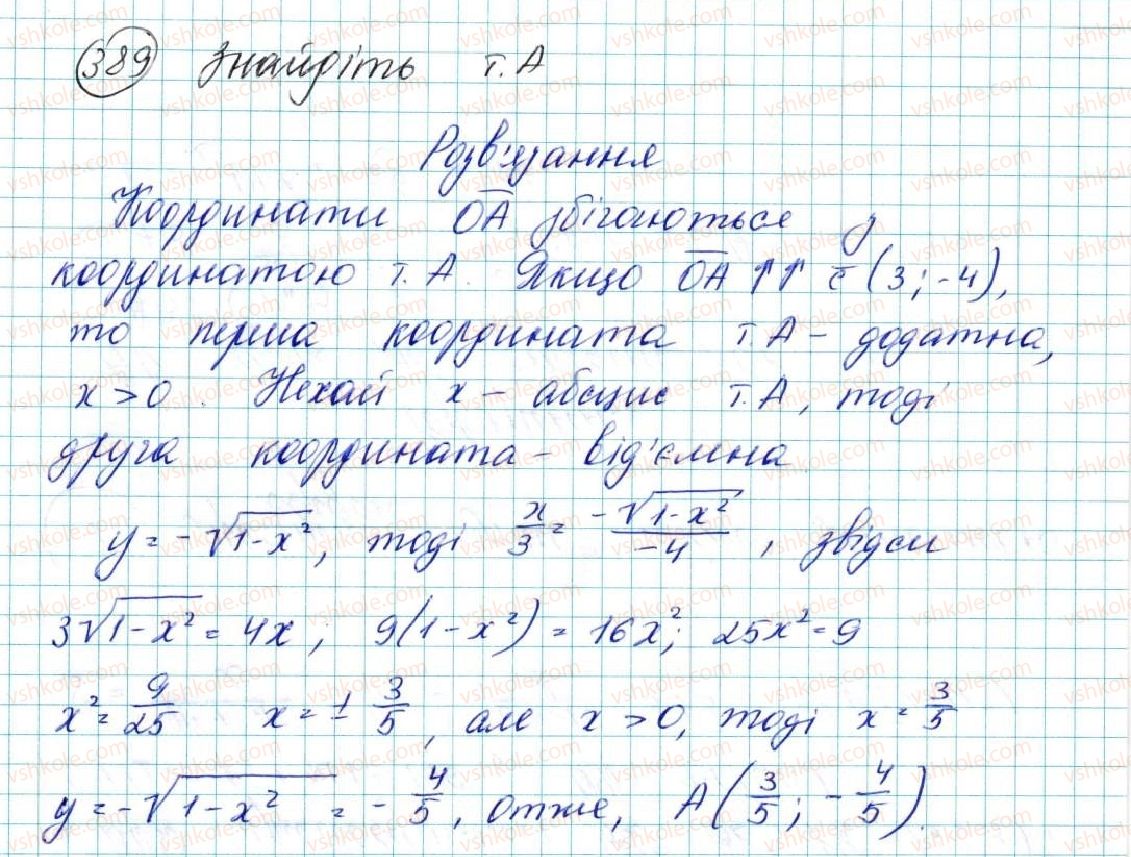 389 Знайдіть т. А
Розв'язання
Координати OA збігаються з
координатою т. А. Якщо OA ↑↑ c (3; -4),
то перша координата т. А - додатна,
x > 0. Нехай x - абсцис т. А, тоді
друга координата - від'ємна
y = -√(1-x²), тоді x/3 = -√(1-x²)/-4, звідси
3√(1-x²) = 4x; 9(1-x²) = 16x²; 25x² = 9
x² = 9/25 x = ± 3/5, але x > 0, тоді x = 3/5
y = -√(1-x²) = - 4/5, отже, A(3/5; -4/5).